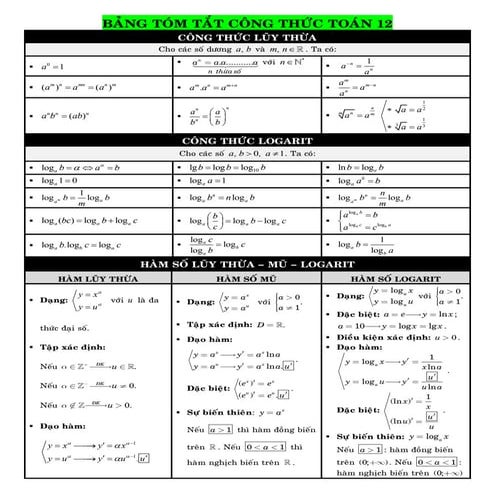 BẢNG TÓM TẮT CÔNG THỨC TOÁN 12
CÔNG THỨC LŨY THỪA
Cho các số dương a, b và m, n ∈ ℝ. Ta có:
• a⁰ = 1 • aⁿ = a.a...........a (n thừa số) với n ∈ ℕ* • a⁻ⁿ = 1/aⁿ
• (aᵐ)ⁿ = aᵐⁿ = (aⁿ)ᵐ • aᵐ.aⁿ = aᵐ⁺ⁿ • aᵐ/aⁿ = aᵐ⁻ⁿ
• aⁿbⁿ = (ab)ⁿ • aⁿ/bⁿ = (a/b)ⁿ
* √a = a^(1/2)
* ∛a = a^(1/3)
CÔNG THỨC LOGARIT
Cho các số a, b > 0, a ≠ 1. Ta có:
• logₐ b = α ⇔ a^α = b • lg b = log b = log₁₀ b • ln b = logₑ b
• logₐ 1 = 0 • logₐ a = 1 • logₐ aⁿ = n
• log_(aᵐ) b = (1/m) logₐ b • logₐ bⁿ = n logₐ b • log_(aᵐ) bⁿ = (n/m) logₐ b
• logₐ(bc) = logₐ b + logₐ c • logₐ(b/c) = logₐ b − logₐ c • { a^(logₐ b) = b
• logₐ b.log_b c = logₐ c • logₐ c / logₐ b = log_b c • logₐ b = 1/log_b a
HÀM SỐ LŨY THỪA – MŨ – LOGARIT
HÀM LŨY THỪA
• Dạng: { y = x^α; y = u^α với u là đa
thức đại số.
• Tập xác định:
Nếu α ∈ ℤ⁺ ĐK→ u ∈ ℝ.
Nếu α ∈ ℤ⁻ ĐK→ u ≠ 0.
Nếu α ∉ ℤ ĐK→ u > 0.
• Đạo hàm:
{ y = x^α → y′ = αx^(α−1)
y = u^α → y′ = αu^(α−1).u′
HÀM SỐ MŨ
• Dạng: { y = aˣ; y = aᵘ với { a > 0; a ≠ 1
• Tập xác định: D = ℝ.
• Đạo hàm:
{ y = aˣ → y′ = aˣ ln a
y = aᵘ → y′ = aᵘ ln a.u′
Đặc biệt: { (eˣ)′ = eˣ
(eᵘ)′ = eᵘ.u′
• Sự biến thiên: y = aˣ
Nếu a > 1 thì hàm đồng biến
trên ℝ. Nếu 0 < a < 1 thì
hàm nghịch biến trên ℝ.
HÀM SỐ LOGARIT
• Dạng: { y = logₐ x; y = logₐ u với { a > 0; a ≠ 1
• Đặc biệt: a = e → y = ln x;
a = 10 → y = log x = lg x.
• Điều kiện xác định: u > 0.
• Đạo hàm:
{ y = logₐ x → y′ = 1/(x ln a)
y = logₐ u → y′ = u′/(u ln a)
Đặc biệt: { (ln x)′ = 1/x
(ln u)′ = u′/u
• Sự biến thiên: y = logₐ x
Nếu a > 1: hàm đồng biến
trên (0;+∞). Nếu 0 < a < 1:
hàm nghịch biến trên (0;+∞)